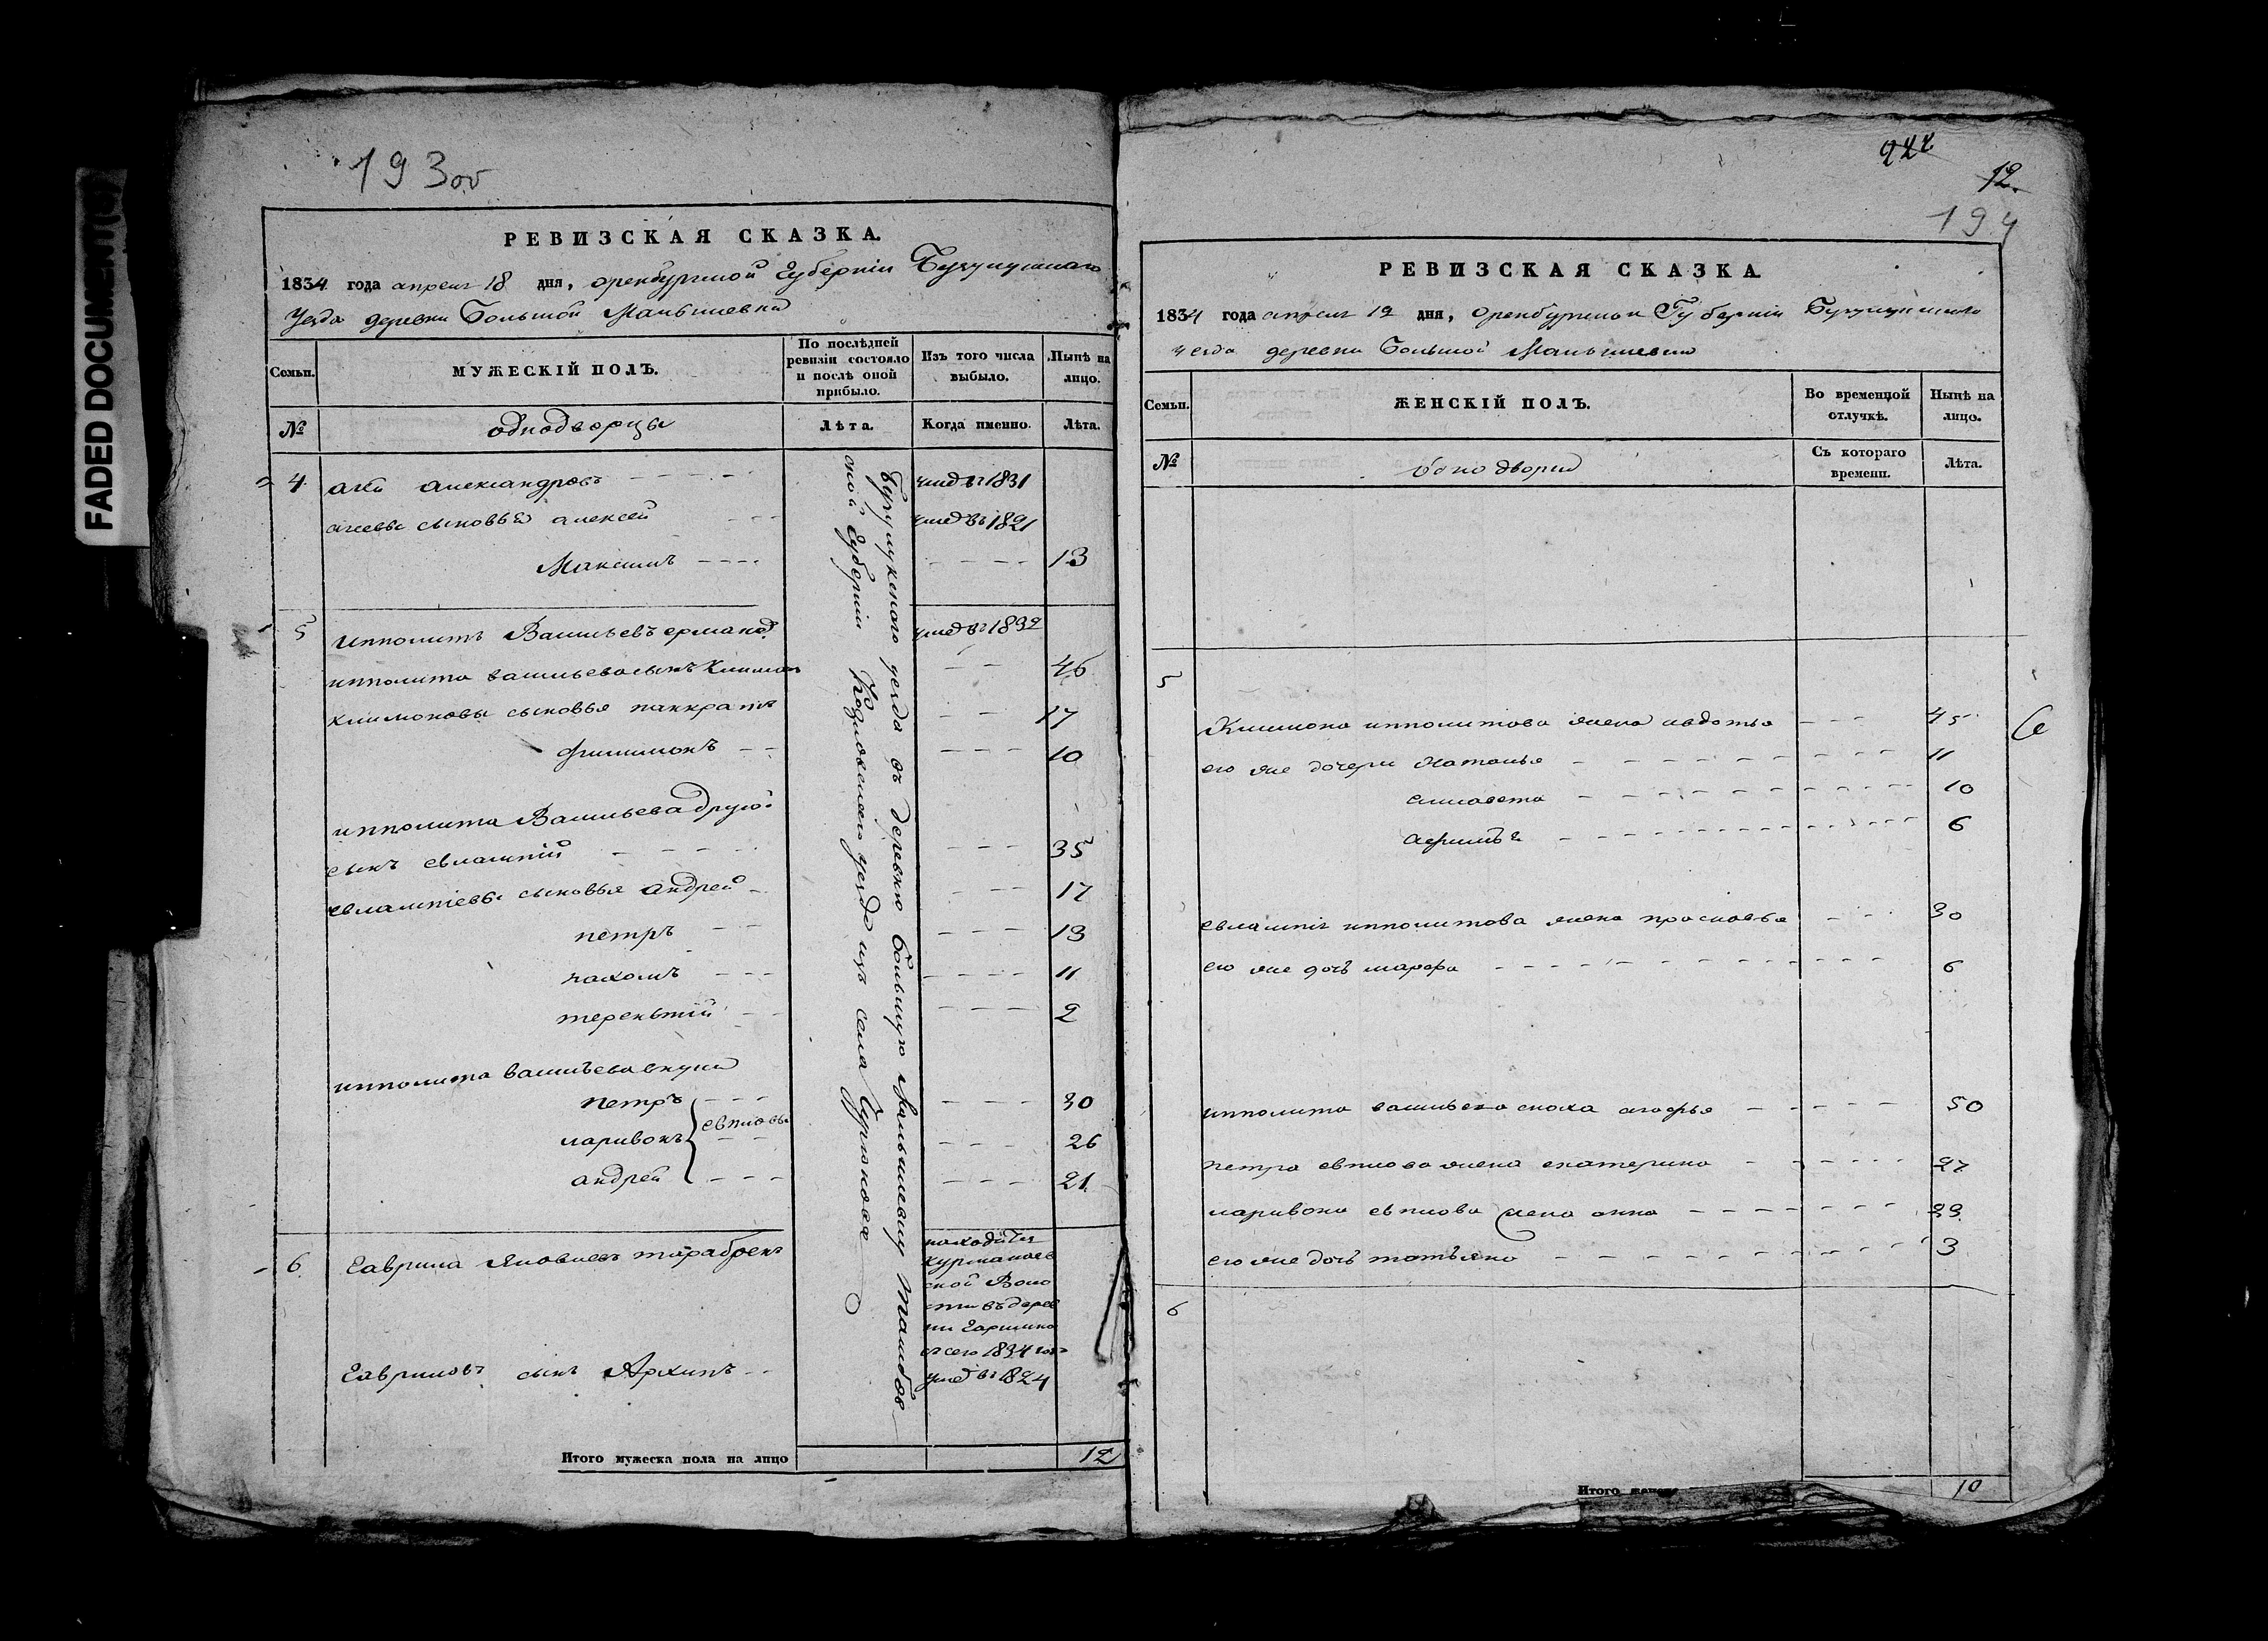 FADED DOCUMENT(S)
193об
РЕВИЗСКАЯ СКАЗКА.
1834 года апреля 18 дня, оренбургской губернии Бузулукского
уезда деревни Большой Малышевки
Семьи.
МУЖЕСКІЙ ПОЛЪ.
По послѣдней ревизіи состояло и послѣ оной прибыло.
Изъ того числа выбыло.
Нынѣ на лицо.
№
однодворцы
Лѣта.
Когда именно.
Лѣта.
4 александровъ умеръ 1831
сыновья алексей умеръ 1821
Максимъ 13
5 иполитъ Васильевъ умеръ 1832
иполита васильева сынъ Климонъ 46
климоновы сыновья панкратъ 17
филимонъ 10
иполита Васильева другой
сынъ евлампий 35
евлампіевы сыновья андрей 17
петръ 13
пахомъ 11
терентий 2
иполита васильева внуки
петръ 30
ларивонъ 26
андрей 21
6 Гаврила Яковлевъ
находится
курманаев
ской Воло
сти въ дерев
ни
сего 1834 года
Гавриловъ сынъ Архипъ умеръ 1824
Бузулукского уезда въ деревню большую малышевку тамбов
ской губернии Козловского уезда изъ села
Итого мужеска пола на лицо 12
922
12.
194
РЕВИЗСКАЯ СКАЗКА.
1834 года апреля 12 дня, Оренбургской Губерніи Бузулукского
уезда деревни Большой Малышевки
Семьи.
ЖЕНСКІЙ ПОЛЪ.
Во временной отлучкѣ.
Нынѣ на лицо.
№
Съ котораго времени.
Лѣта.
5
Климона иполитова жена авдотья 45
его же дочери Наталья 11
елисавета 10
6
евлампия иполитова жена прасковья 30
его же дочь марфа 6
иполита васильева сноха агафья 50
петра жена екатерина 27
ларивона жена анна 23
его же дочь татьяна 3
6
Итого 10